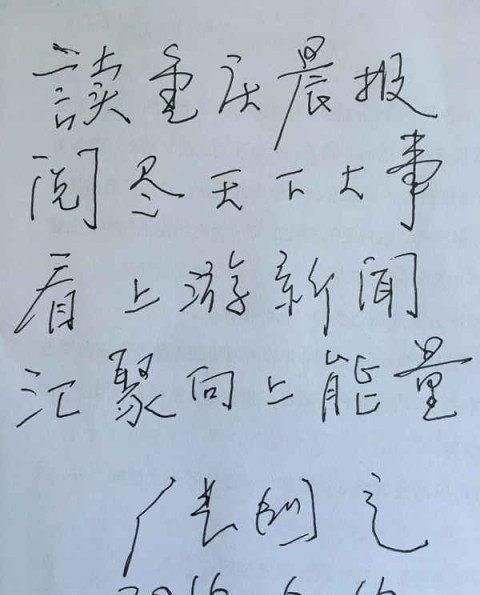 読重庆晨报
阅尽天下大事
看上游新闻
汇聚向上能量